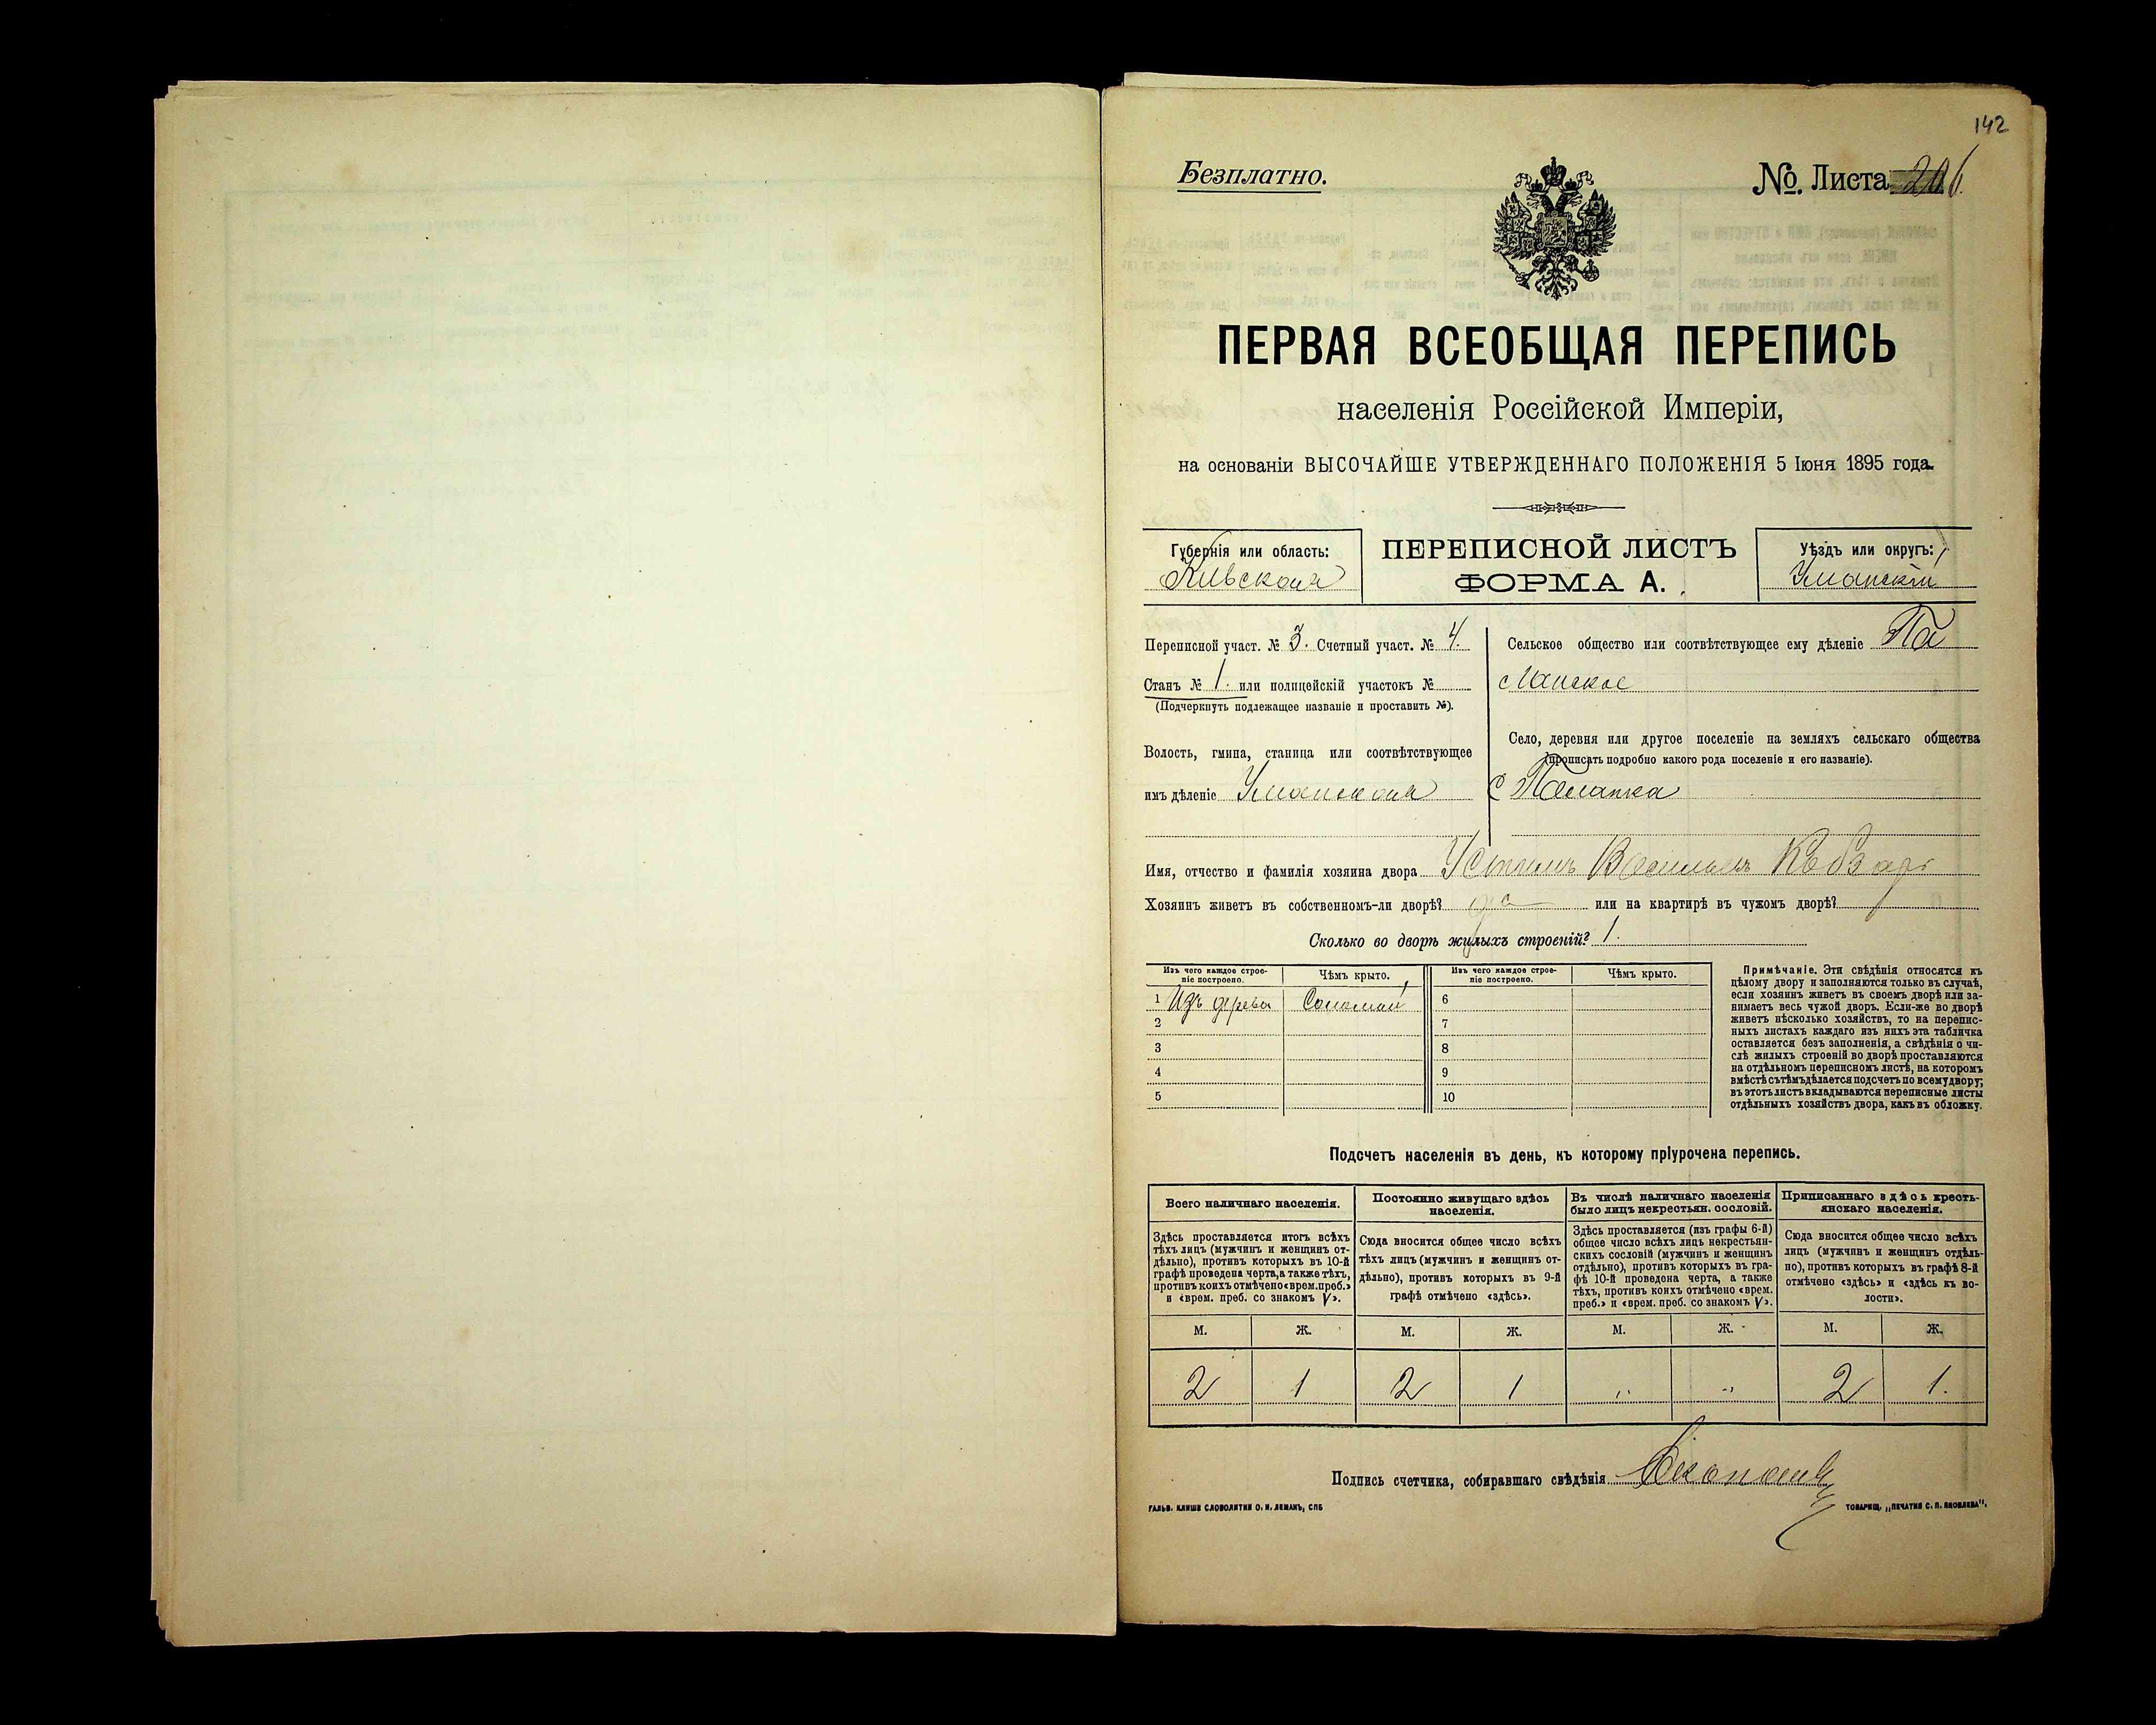 142
Безплатно.
№. Листа 206.
ПЕРВАЯ ВСЕОБЩАЯ ПЕРЕПИСЬ
населенія Россійской Имперіи,
на основаніи ВЫСОЧАЙШЕ УТВЕРЖДЕННАГО ПОЛОЖЕНІЯ 5 Іюня 1895 года.
Губернія или область:
Кіевская
ПЕРЕПИСНОЙ ЛИСТЪ
ФОРМА А.
Уѣздъ или округъ:
Уманскій
Переписной участ. № 3. Счетный участ. № 4.
Станъ № 1. или полицейскій участокъ №
(Подчеркнуть подлежащее названіе и проставить №).
Волость, гмина, станица или соотвѣтствующее
имъ дѣленіе Уманская
Сельское общество или соотвѣтствующее ему дѣленіе Па
ланское
Село, деревня или другое поселеніе на земляхъ сельскаго общества
(прописать подробно какого рода поселеніе и его названіе).
с Паланка
Имя, отчество и фамилія хозяина двора Устинъ Васильевъ Кобзарь
Хозяинъ живетъ въ собственномъ-ли дворѣ? да или на квартирѣ въ чужомъ дворѣ?
Сколько во дворѣ жилыхъ строеній? 1.
Изъ чего каждое строе-
ніе построено.
Чѣмъ крыто.
Изъ чего каждое строе-
ніе построено.
Чѣмъ крыто.
1 Изъ дерева Соломой 6
2 7
3 8
4 9
5 10
Примѣчаніе. Эти свѣдѣнія относятся къ
цѣлому двору и заполняются только въ случаѣ,
если хозяинъ живетъ въ своемъ дворѣ или за-
нимаетъ весь чужой дворъ. Если-же во дворѣ
живетъ нѣсколько хозяйствъ, то на перепис-
ныхъ листахъ каждаго изъ нихъ эта табличка
оставляется безъ заполненія, а свѣдѣнія о чи-
слѣ жилыхъ строеній во дворѣ проставляются
на отдѣльномъ переписномъ листѣ, на которомъ
вмѣстѣ съ тѣмъ дѣлается подсчетъ по всему двору;
въ этотъ листъ вкладываются переписные листы
отдѣльныхъ хозяйствъ двора, какъ въ обложку.
Подсчетъ населенія въ день, къ которому пріурочена перепись.
Всего наличнаго населенія.
Здѣсь проставляется итогъ всѣхъ
тѣхъ лицъ (мужчинъ и женщинъ от-
дѣльно), противъ которыхъ въ 10-й
графѣ проведена черта, а также тѣхъ,
противъ коихъ отмѣчено «врем. преб.»
и «врем. преб. со знакомъ V».
Постоянно живущаго здѣсь
населенія.
Сюда вносится общее число всѣхъ
тѣхъ лицъ (мужчинъ и женщинъ от-
дѣльно), противъ которыхъ въ 9-й
графѣ отмѣчено «здѣсь».
Въ числѣ наличнаго населенія
было лицъ некрестьян. сословій.
Здѣсь проставляется (изъ графы 6-й)
общее число всѣхъ лицъ некрестьян-
скихъ сословій (мужчинъ и женщинъ
отдѣльно), противъ которыхъ въ гра-
фѣ 10-й проведена черта, а также
тѣхъ, противъ коихъ отмѣчено «врем.
преб.» и «врем. преб. со знакомъ V».
Приписаннаго здѣсь кресть-
янскаго населенія.
Сюда вносится общее число всѣхъ
лицъ (мужчинъ и женщинъ отдѣль-
но), противъ которыхъ въ графѣ 8-й
отмѣчено «здѣсь» и «здѣсь къ во-
лости».
М. Ж. М. Ж. М. Ж. М. Ж.
2 1 2 1 " " 2 1.
Подпись счетчика, собиравшаго свѣдѣнія
ГАЛЬВ. КЛИШЕ СЛОВОЛИТНИ О. И. ЛЕМАНЪ, СПБ
ТОВАРИЩ. „ПЕЧАТНЯ С. П. ЯКОВЛЕВА".